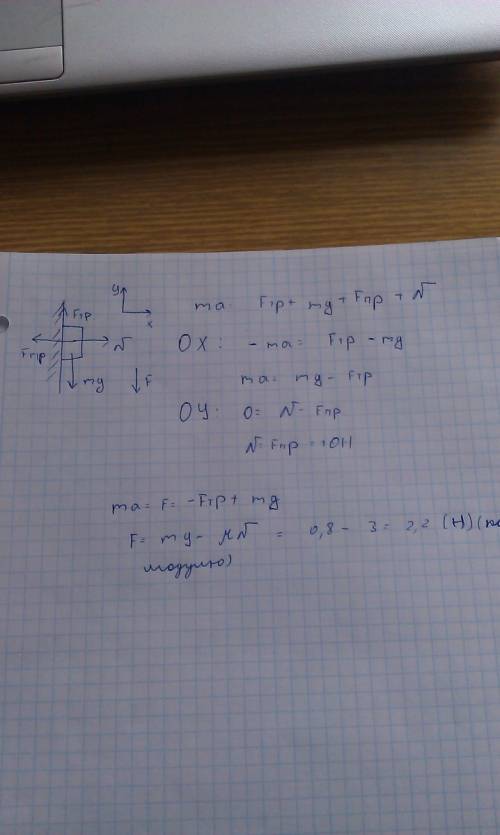 y
x
Fтр
N
Fпр
mg
F
ma = Fтр + mg + Fпр + N
OX: -ma = Fтр - mg
ma = mg - Fтр
OY: 0 = N - Fпр
N = Fпр = 10H
ma = F = -Fтр + mg
F = mg - μN = 0,8 - 3 = 2,2 (H) (по
модулю)